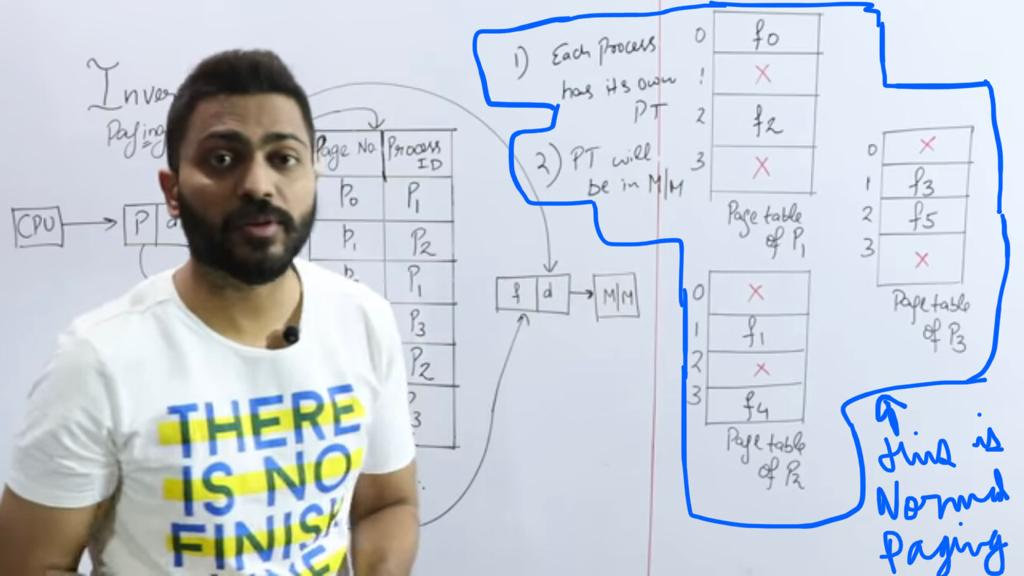 Inver
Paging
CPU
P d
Page No. Process ID
P0 P1
P1 P2
P1
P3
P2
3
f d
M/M
1) Each Process
has its own
PT
2) PT will
be in M/M
0 f0
1 ×
2 f2
3 ×
Page table
of P1
0 ×
1 f1
2 ×
3 f4
Page table
of P2
0 ×
1 f3
2 f5
3 ×
Page table
of P3
this is
Normal
Paging
THERE
IS NO
FINISH